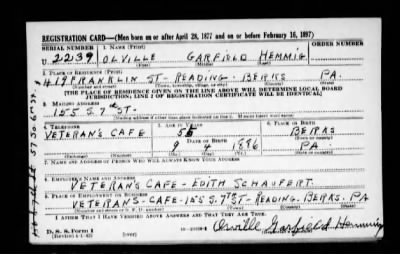 REGISTRATION CARD—(Men born on or after April 28, 1877 and on or before February 16, 1897)
SERIAL NUMBER 1. NAME (Print) ORDER NUMBER
U. 2239 OLVILLE GARFIELD HEMMIG
(First) (Middle) (Last)
2. PLACE OF RESIDENCE (Print)
419 FRANKLIN ST - READING - BERKS PA.
(Number and street) (Town, township, village, or city) (County) (State)
[THE PLACE OF RESIDENCE GIVEN ON THE LINE ABOVE WILL DETERMINE LOCAL BOARD
JURISDICTION; LINE 2 OF REGISTRATION CERTIFICATE WILL BE IDENTICAL]
3. MAILING ADDRESS
155 S. 7th ST.
4. TELEPHONE 5. AGE IN YEARS 6. PLACE OF BIRTH
VETERAN'S CAFE 55 BERKS
DATE OF BIRTH
9 4 1886 PA.
(Exchange) (Number) (Mo.) (Day) (Yr.) (State or country)
7. NAME AND ADDRESS OF PERSON WHO WILL ALWAYS KNOW YOUR ADDRESS
8. EMPLOYER'S NAME AND ADDRESS
VETERAN'S CAFE - EDITH SCHAUFERT.
9. PLACE OF EMPLOYMENT OR BUSINESS
VETERANS - CAFE - 155 S. 7TH ST - READING. BERKS. PA
(Number and street or R. F. D. number) (Town) (County) (State)
I AFFIRM THAT I HAVE VERIFIED ABOVE ANSWERS AND THAT THEY ARE TRUE.
D. S. S. Form 1
(Revised 4-1-42) (over) Orville Garfield Hemmig